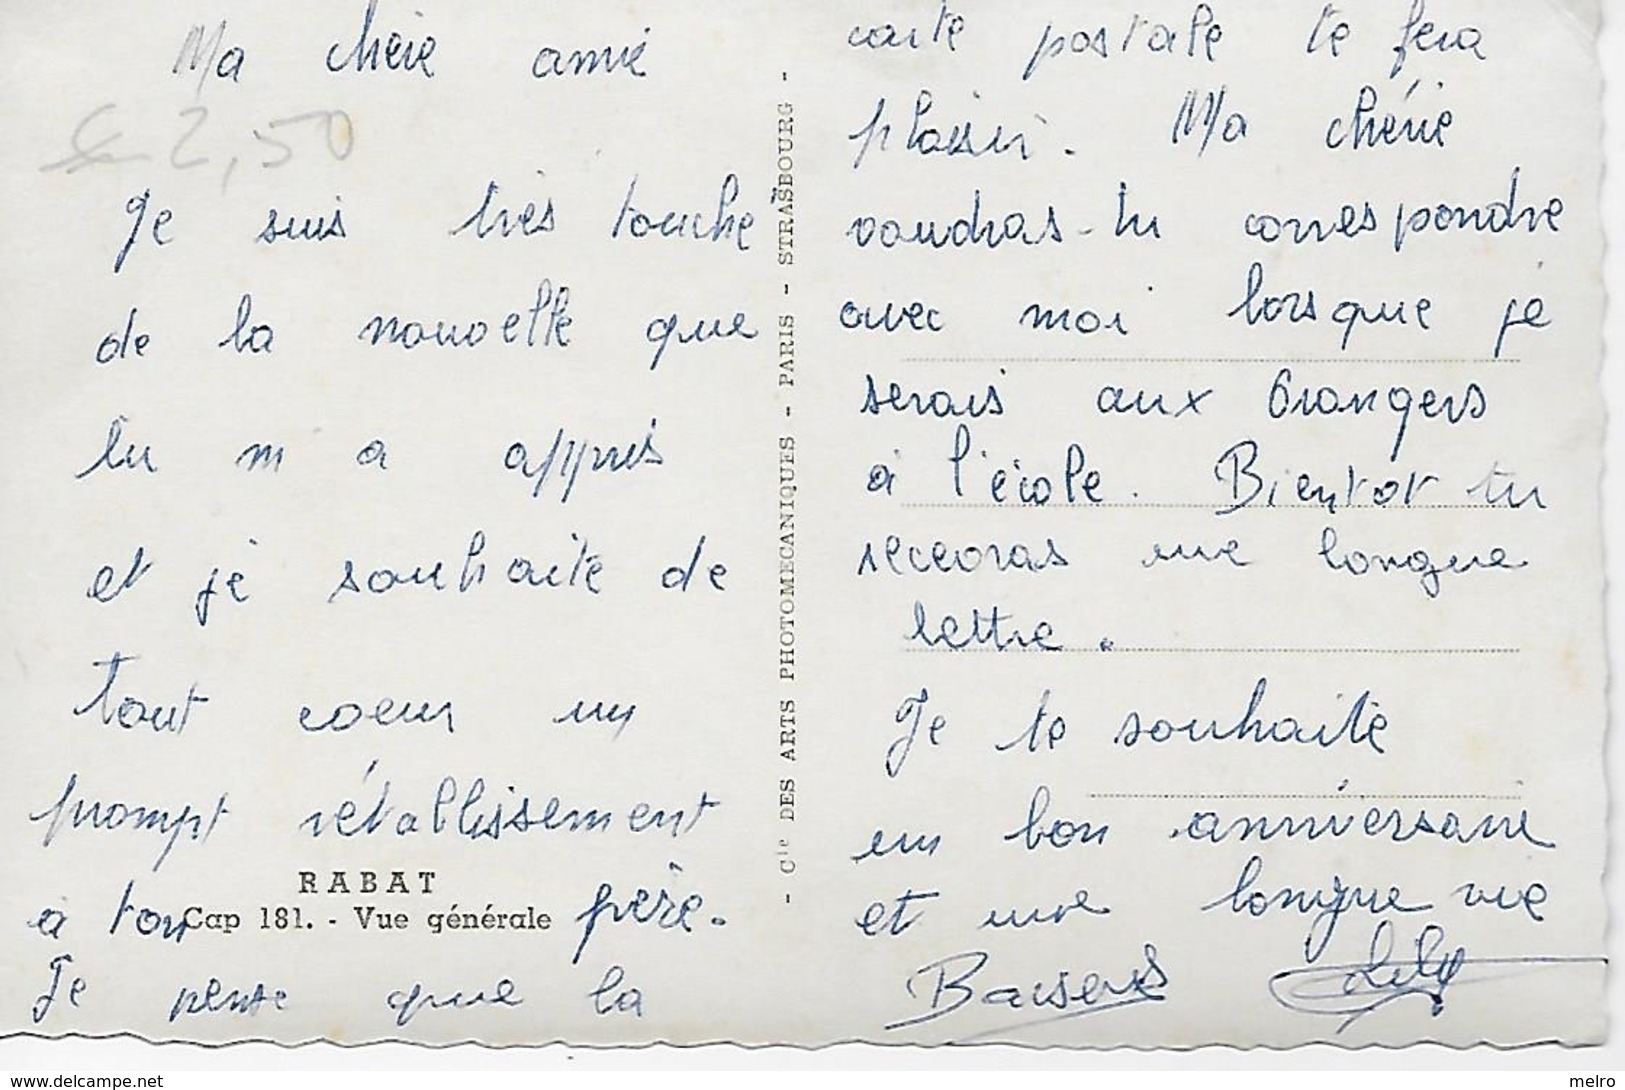 Ma chère amie
2,50
Je suis très touché
de la nouvelle que
tu m a appris
et je souhaite de
tout coeur un
prompt rétablissement
RABAT
à ton père.
Cap 181. - Vue générale
Je pense que la
- Cie DES ARTS PHOTOMECANIQUES - PARIS - STRASBOURG -
carte postale te fera
plaisir. Ma chérie
voudras-tu correspondre
avec moi lorsque je
serais aux Orangers
à l'école. Bientot tu
receovras une longue
lettre.
Je te souhaite
un bon anniversaire
et une longue vie
Baisers Lily
delcampe.net
melro